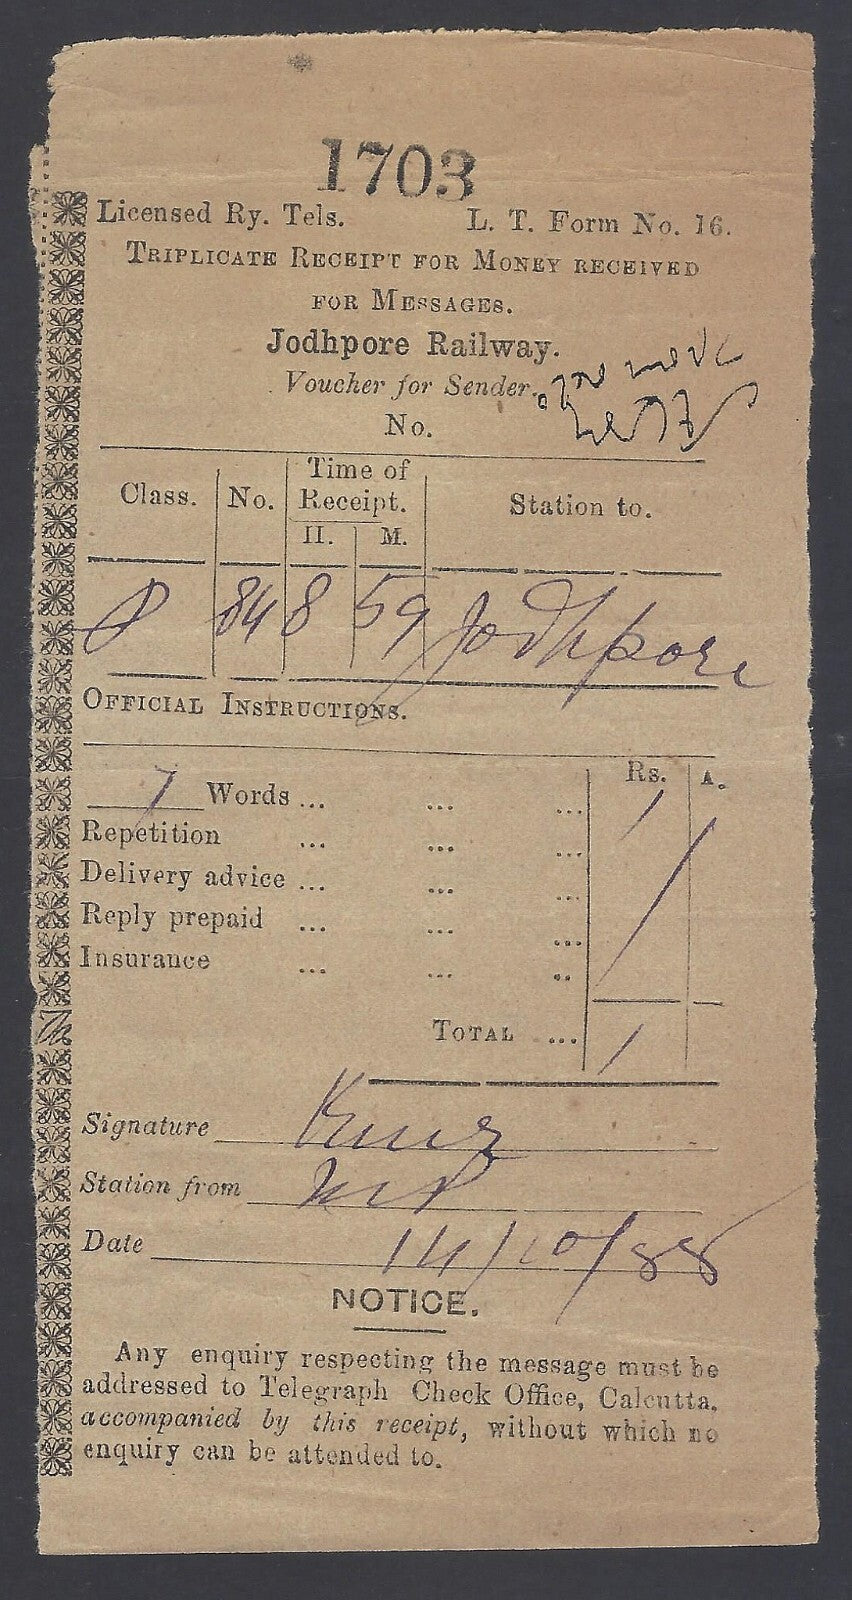 1703
Licensed Ry. Tels. L. T. Form No. 16.
TRIPLICATE RECEIPT FOR MONEY RECEIVED
FOR MESSAGES.
Jodhpore Railway.
Voucher for Sender.
No.
Class. No. Time of Receipt. Station to.
H. M.
84 8 59 Jodhpore
OFFICIAL INSTRUCTIONS.
Rs. A.
7 Words ... ... ... 1
Repetition ... ... ...
Delivery advice ... ... ...
Reply prepaid ... ... ...
Insurance ... ... ..
TOTAL ... 1
Signature
Station from
Date 14/10/88
NOTICE.
Any enquiry respecting the message must be
addressed to Telegraph Check Office, Calcutta.
accompanied by this receipt, without which no
enquiry can be attended to.